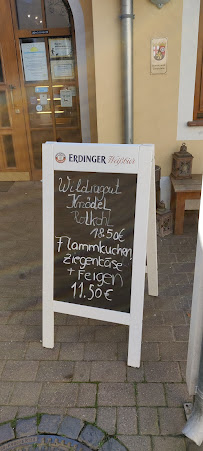 ERDINGER Weißbier
Wildragout
Knödel
Rotkohl
18.50€
Flammkuchen
Ziegenkäse
+ Feigen
11.50€